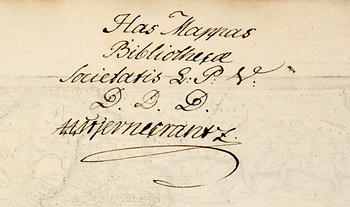 Has Mappas
Bibliothecæ
Societatis L. P. V.
D. D. D.
Stjernecrantz.